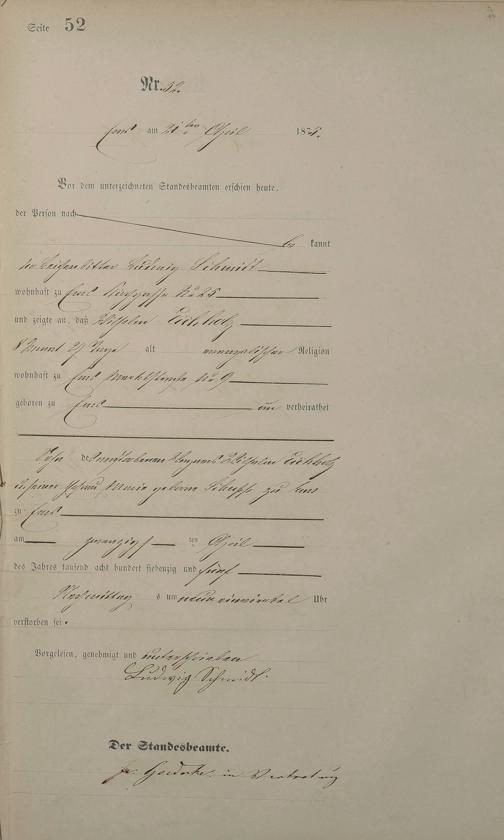 Seite 52
Nr. 52.
Ems am 21ten April 1875.
Vor dem unterzeichneten Standesbeamten erschien heute,
der Person nach
be kannt
der Ludwig Schmidt
wohnhaft zu Ems No 25
und zeigte an, daß Wilhelm Eichholz
8 Monat 29 Tage alt evangelischer Religion
wohnhaft zu Ems Marktstraße No 9
geboren zu Ems un verheirathet
Sohn des verstorbenen Wilhelm Eichholz
Maria geborene zu Ems
zu Ems
am zwanzigsten April
des Jahres tausend acht hundert siebenzig und fünf
Nachmittag s um neun einviertel Uhr
verstorben sei.
Vorgelesen, genehmigt und unterschrieben
Ludwig Schmidt.
Der Standesbeamte.
in Vertretung